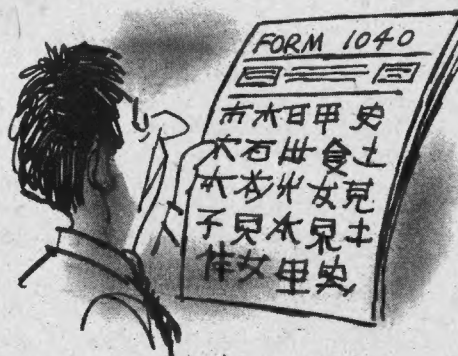 FORM 1040
市木日甲史
木石世食土
木女見
子見木見土
侔女里史